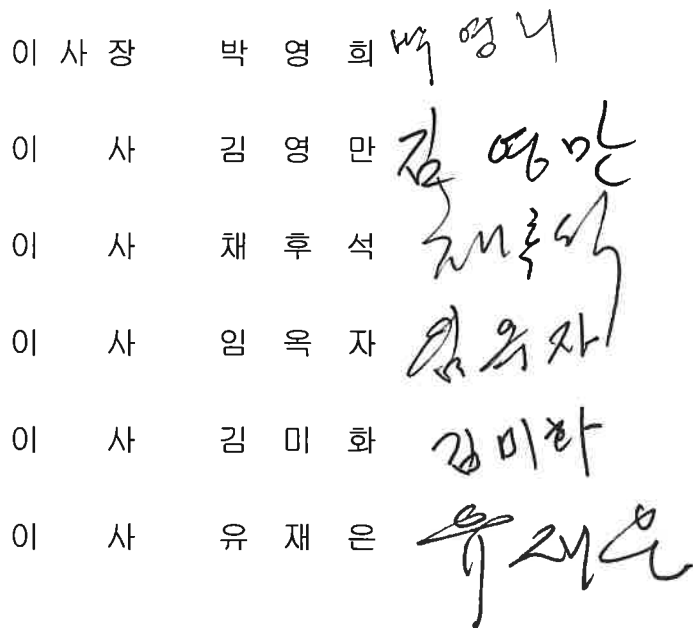 이 사 장 박 영 희 박영희
이 사 김 영 만 김영만
이 사 채 후 석 채후석
이 사 임 옥 자 임옥자
이 사 김 미 화 김미화
이 사 유 재 은 유재은